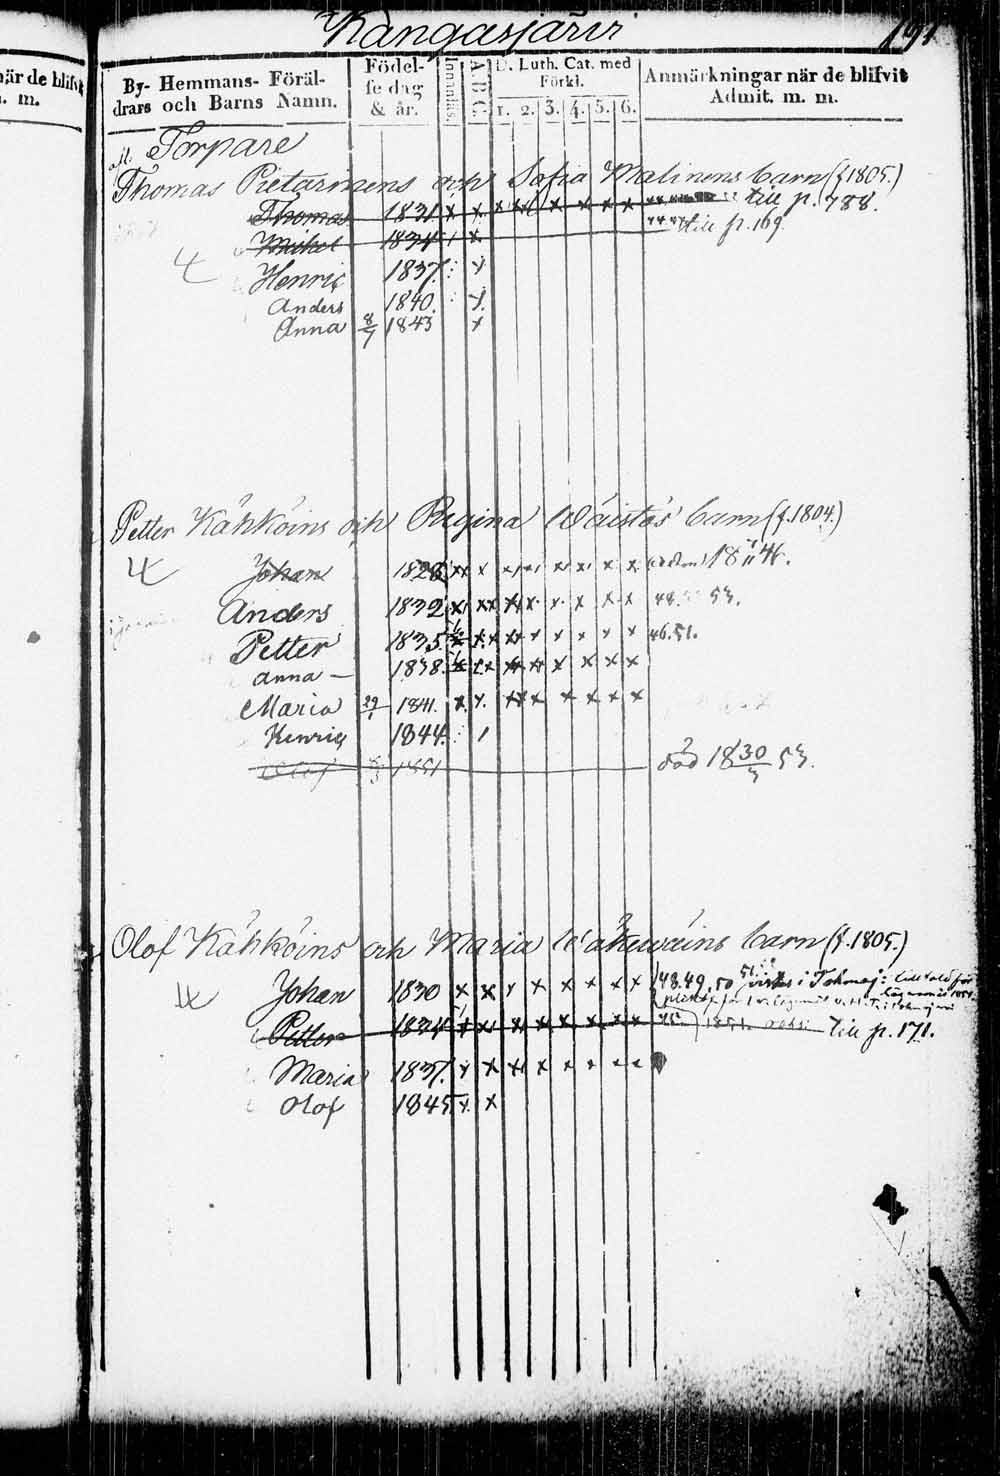 Kangasjärvi 191
när de blifvit
m. m.
By- Hemmans- Föräl-
drars och Barns Namn.
Födel-
se dag
& år.
Innanläs.
A. B. C.
D. Luth. Cat. med
Förkl.
1. 2. 3. 4. 5. 6.
Anmärkningar när de blifvit
Admit. m. m.
Torpare
Thomas Pietarinens och Sofia Malinens barn (f. 1805.)
Thomas 1831 x x x xx x x x x till p. 788.
Michel 1834 x 44 till p. 169
Henric 1837.
Anders 1840.
Anna 8/7 1843 x
Petter Kähköins och Regina Wäistös barn (f. 1804.)
Johan 1828 xx x x x x x 18 46.
Anders 1832 x xx x x x x x 48. 53.
Petter 1835 x x xx x x x x x 46. 51.
Anna — 1838. x x xx xx x x x x
Maria 29/1 1841. x. x. xx x x x x x
Henric 1844.
Olof 1851 död 18 30/3 53.
Olof Kähköins och Maria Wäkewäins barn (f. 1805.)
Johan 1830 x x x x x x x x 48. 49. 50 51 i Tohmaj:
Petter 1834 x x x x x x x x 1851. till p. 171.
Maria 1837. x x xx x x x x x
Olof 1845 x. x